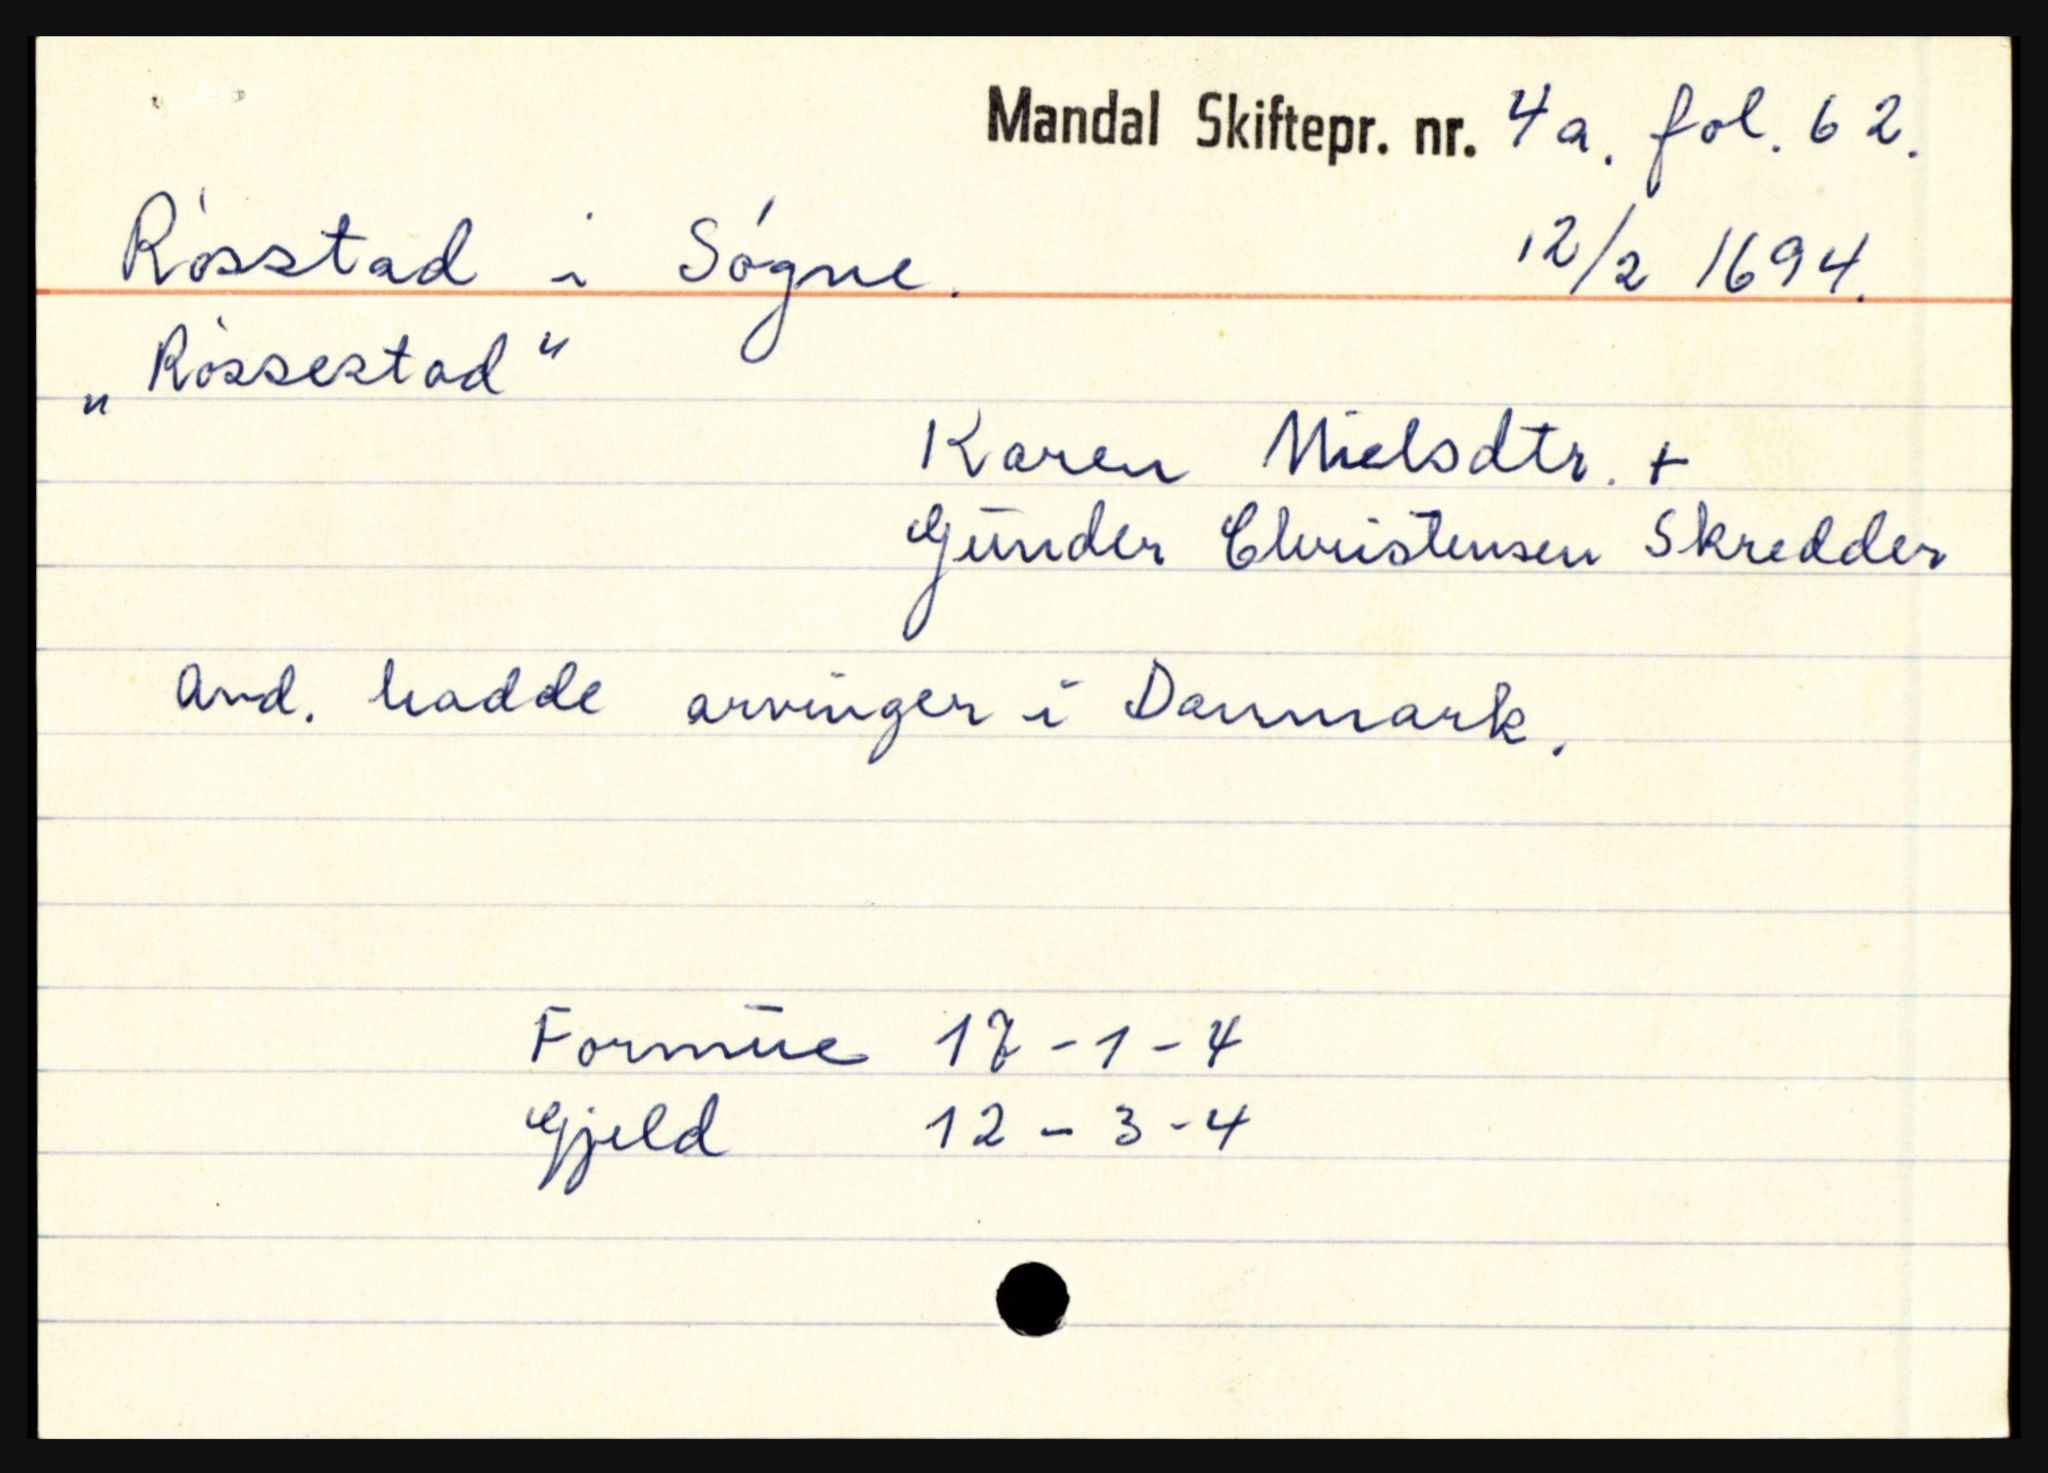 Mandal Skiftepr. nr. 4a. fol. 62.
Rósstad i Sógne. 12/2 1694.
„Róssestad“
Karen Nielsdtr. +
Gūnder Christensen Skredder
Avd. hadde arvinger i Danmark.
Formūe 17-1-4
Gjeld 12-3-4